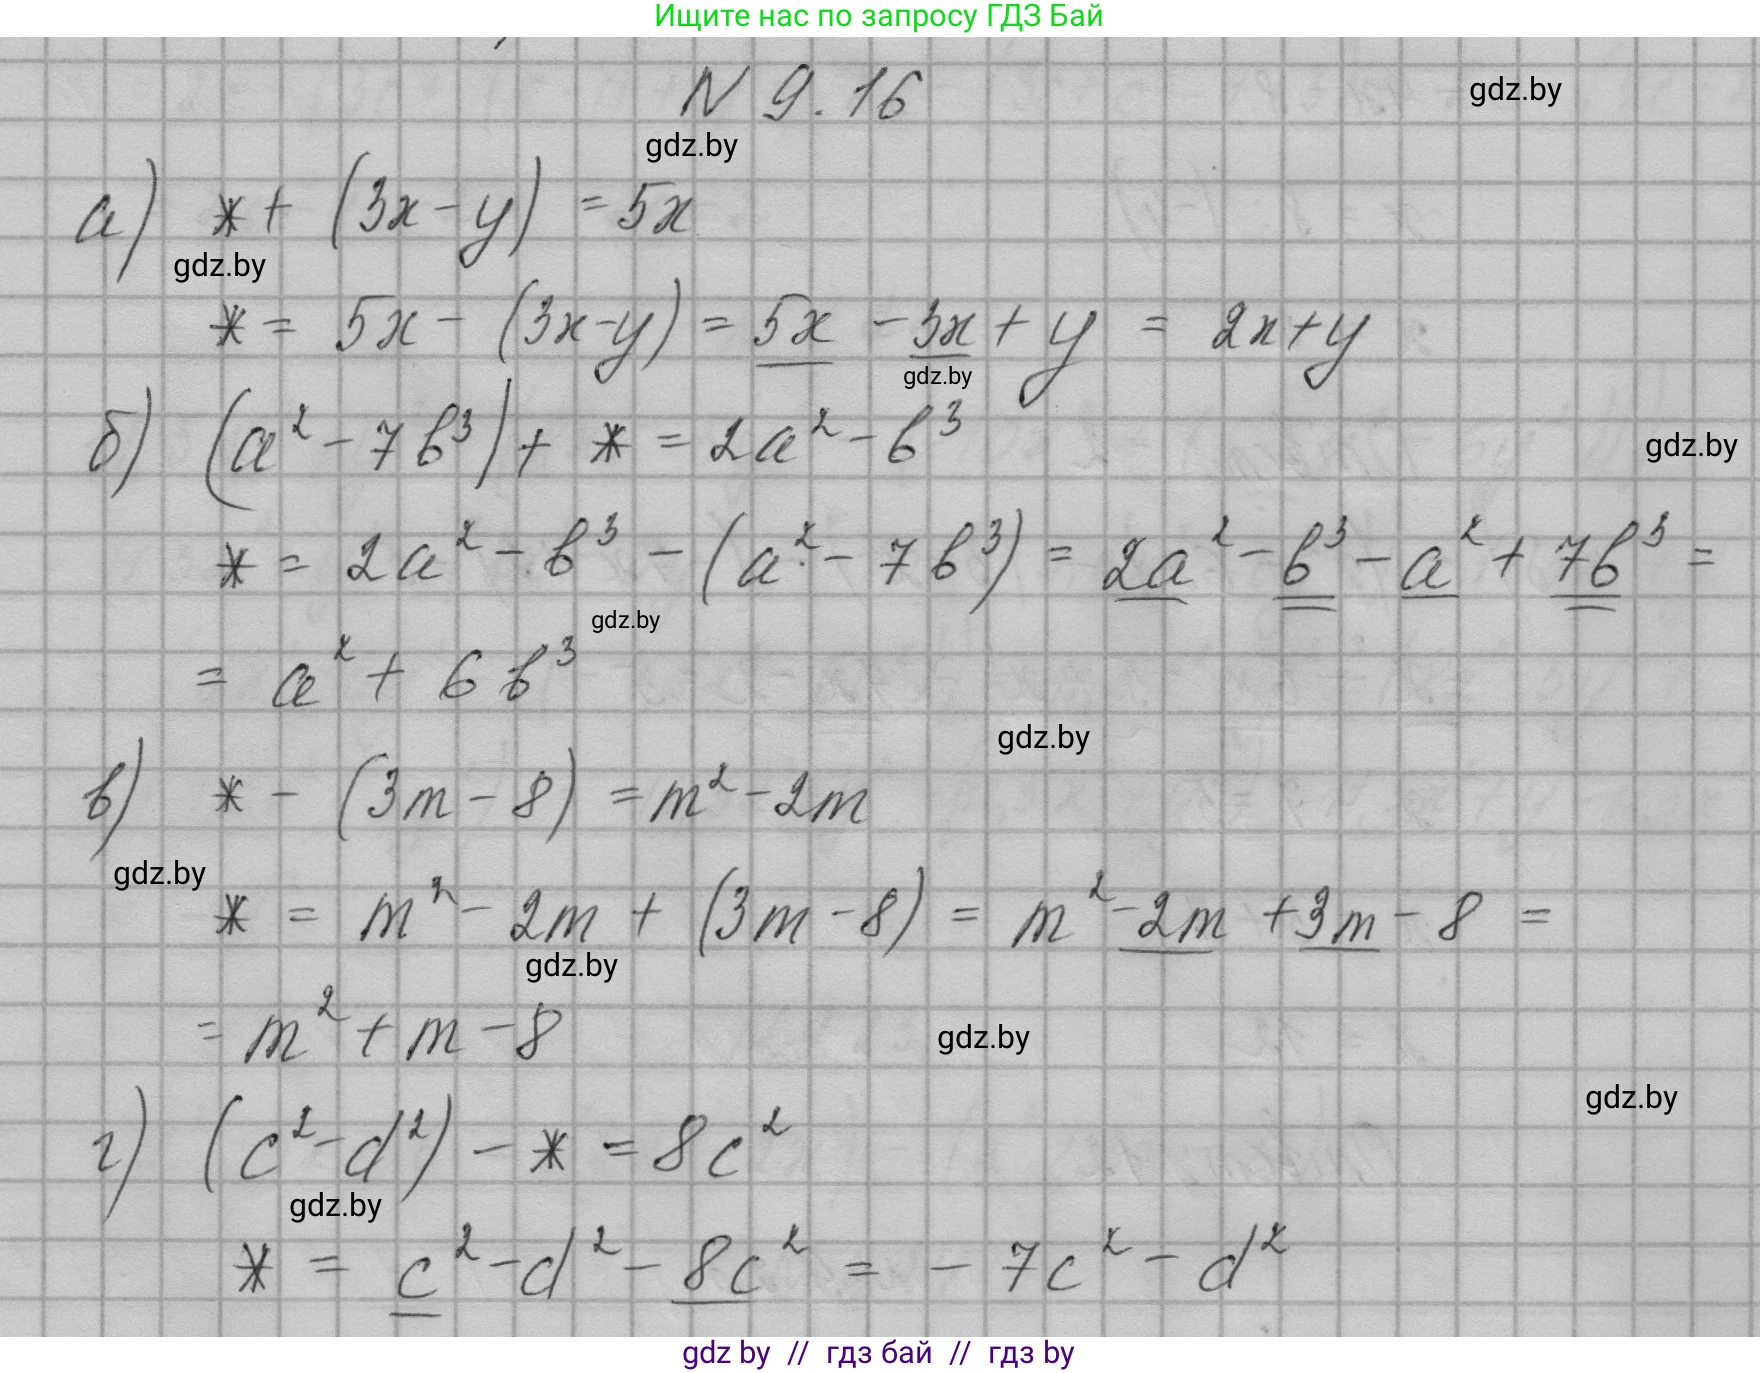 Ищите нас по запросу ГДЗ Бай
N 9.16
gdz.by
gdz.by
а) * + (3x - y) = 5x
gdz.by
* = 5x - (3x - y) = 5x - 3x + y = 2x + y
gdz.by
б) (a² - 7b³) + * = 2a² - b³
gdz.by
* = 2a² - b³ - (a² - 7b³) = 2a² - b³ - a² + 7b³ =
gdz.by
= a² + 6b³
gdz.by
в) * - (3m - 8) = m² - 2m
gdz.by
* = m² - 2m + (3m - 8) = m² - 2m + 3m - 8 =
gdz.by
= m² + m - 8
gdz.by
gdz.by
г) (c² - d²) - * = 8c²
gdz.by
* = c² - d² - 8c² = - 7c² - d²
gdz by // гдз бай // гдз by